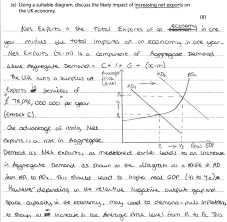 (e) Using a suitable diagram, discuss the likely impact of increasing net exports on
the UK economy.
(8)
Net Exports is the Total Exports of an economy in one
year minus the total imports of an economy in one year.
Net Exports (x-m) is a component of Aggregate Demand
where Aggregate Demand = C + I + G + (x-m)
The UK runs a surplus of
Exports of services of
per year
(Extract C).
One advantage of rising Net
exports is a rise in Aggregate
Average
Price
Level
AD1
AD2
AS
P2
P1
Y1
Y2
Real GDP
Demand as Net exports, as mentioned earlier leads to an increase
in Aggregate Demand as shown in the diagram as a shift of AD
from AD1 to AD2. This should lead to higher Real GDP (Y1 to Y2).
However depending on the relative Negative output gap and
Spare capacity in the economy, may lead to demand-pull inflation,
as shown as increase in the Average Price level from P1 to P2. This